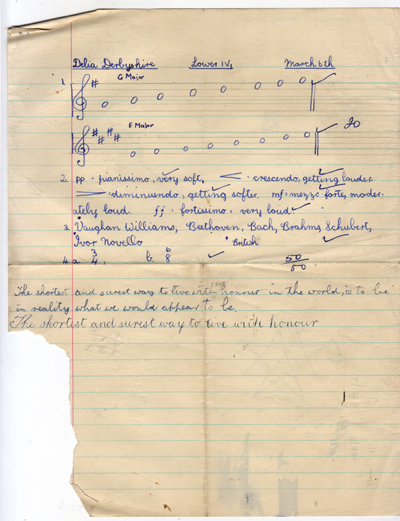 Delia Derbyshire Lower IV, March 6th
1. G Major
E Major 20
2. pp · pianissimo, very soft, < · crescendo, getting louder
> · diminuendo, getting softer. mf · mezzo forte, moder-
ately loud. ff · fortissimo · very loud
3. Vaughan Williams, Bethoven, Bach, Brahms Schubert,
Ivor Novello • British
4. a. 3/4, b. 6/8 50/50
The shortest and surest way to live with honour in the world, is to be
in reality what we would appear to be.
The shortest and surest way to live with honour